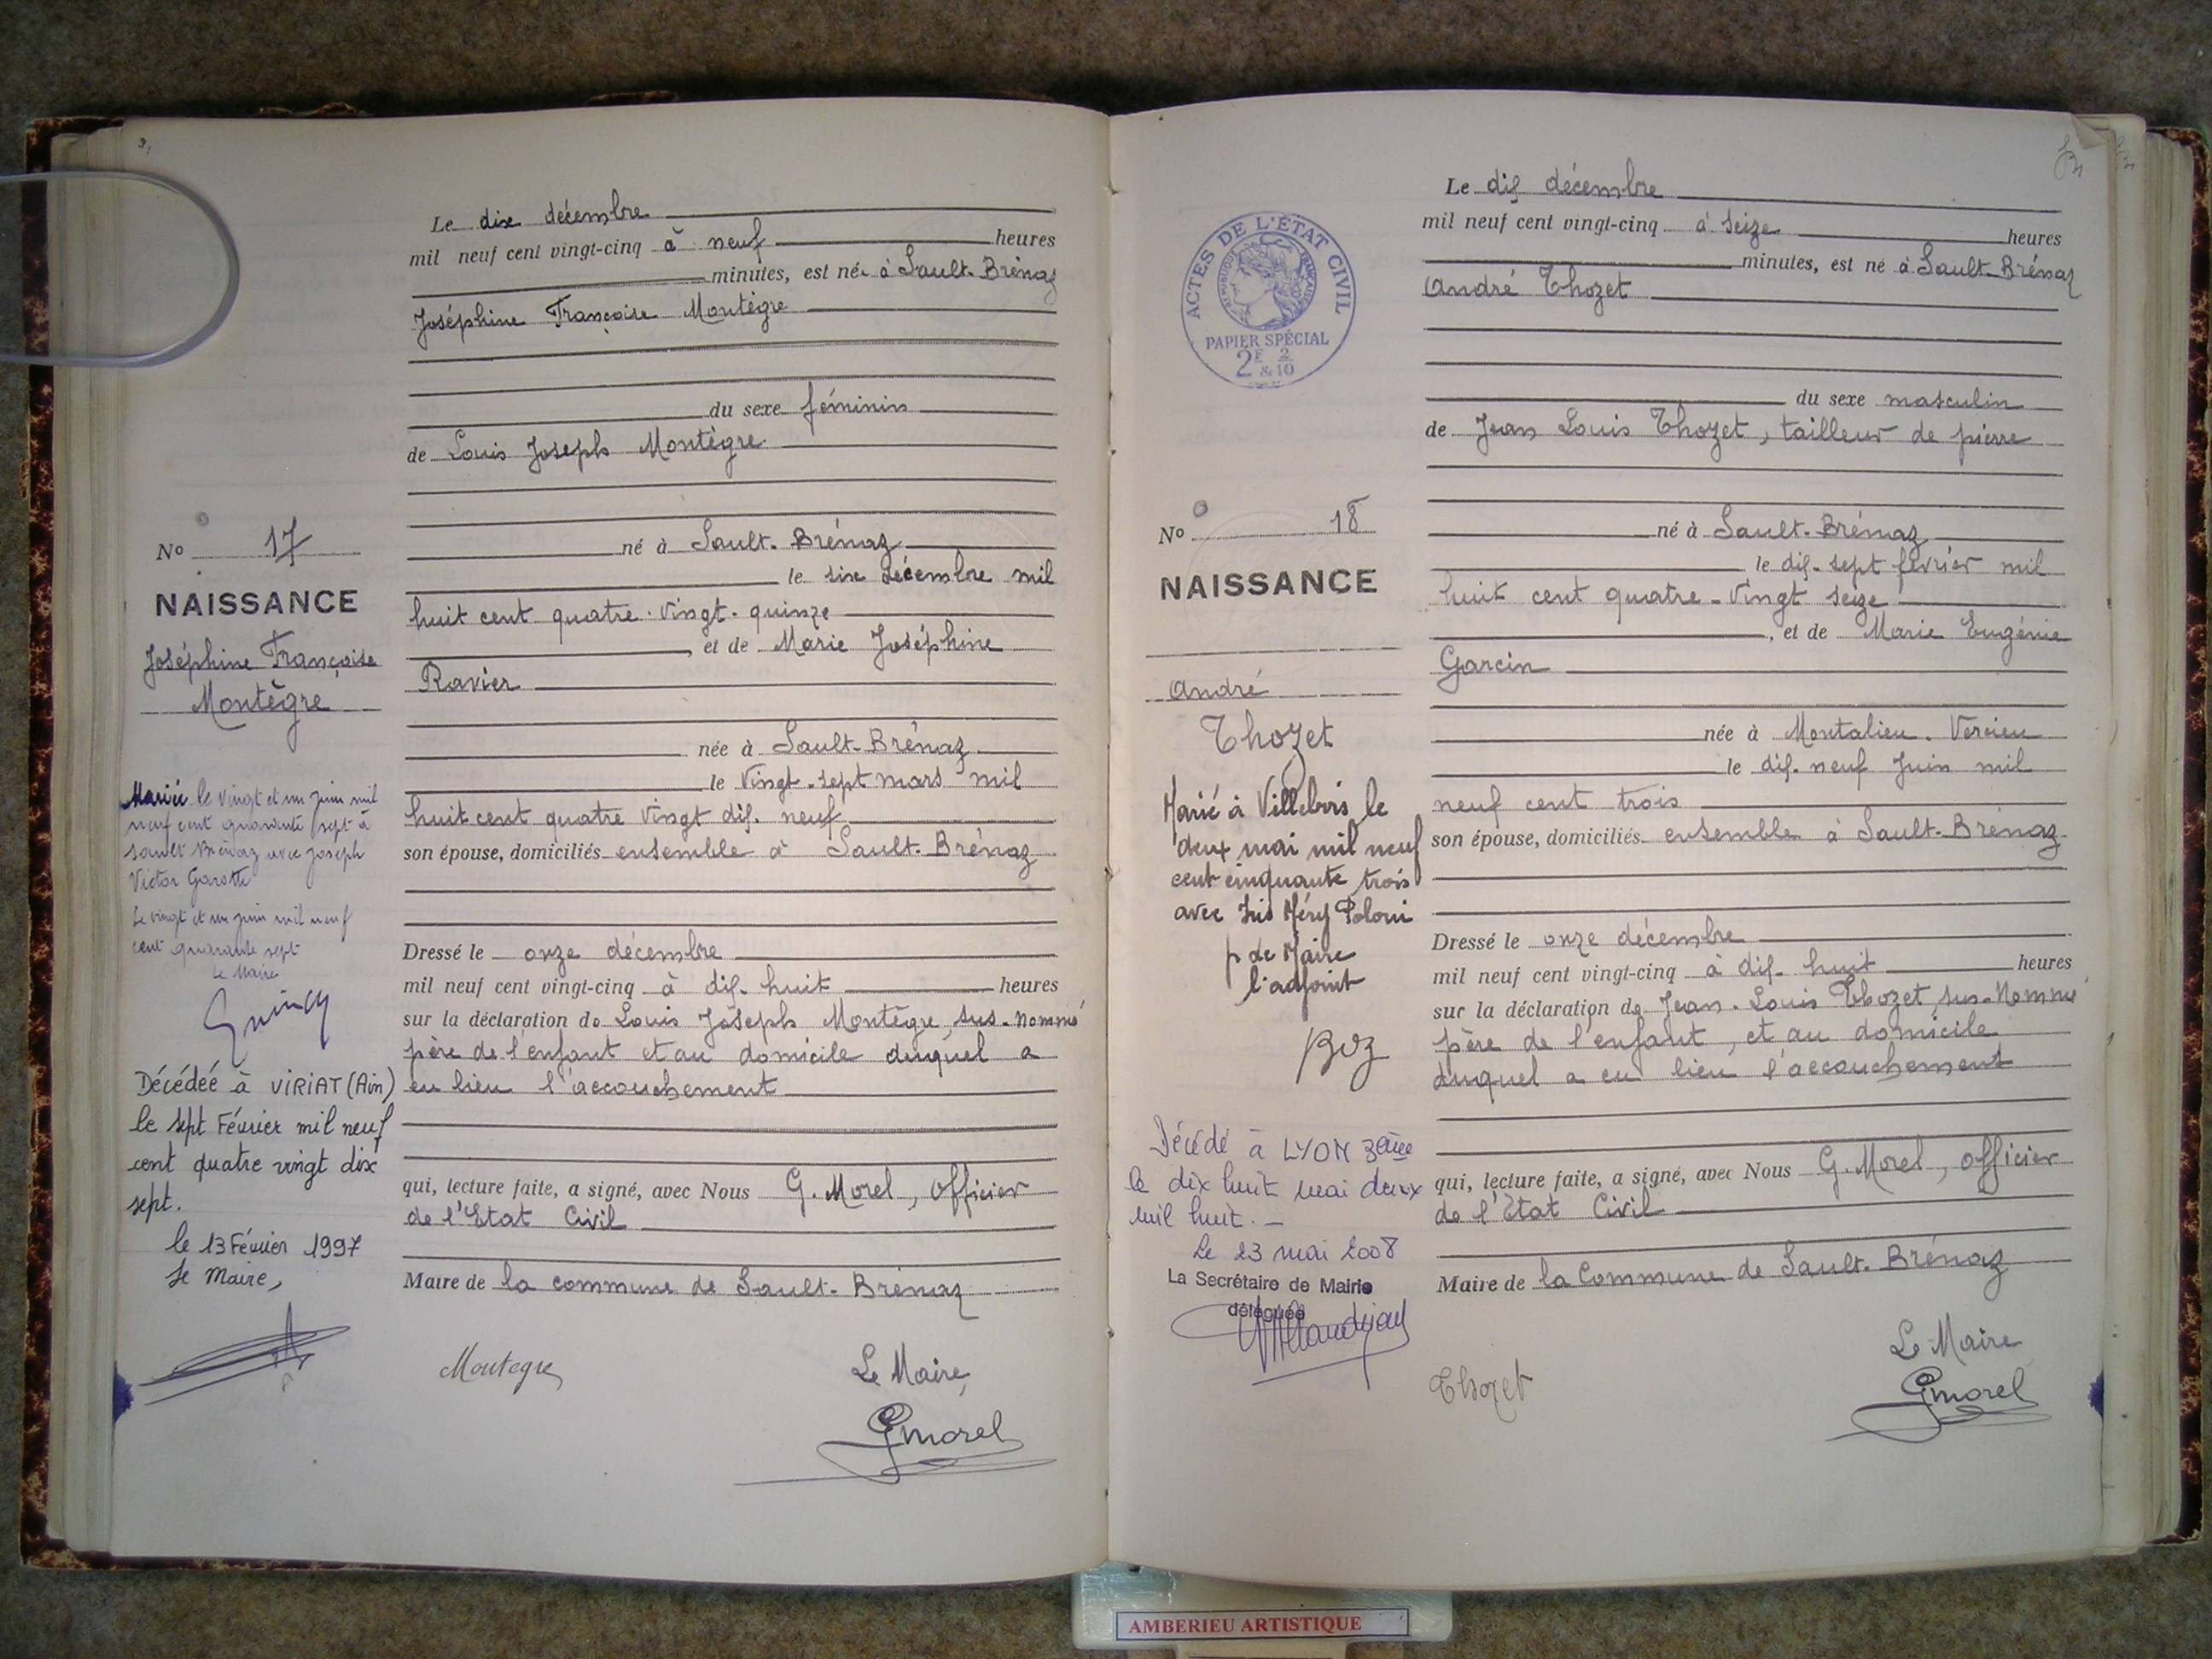 Le dix décembre
mil neuf cent vingt-cinq à neuf heures
minutes, est née à Sault-Brénaz
Joséphine Françoise Montègre
du sexe féminin
de Louis Joseph Montègre
né à Sault-Brénaz
le six décembre mil
huit cent quatre-vingt-quinze
et de Marie Joséphine
Ravier
née à Sault-Brénaz
le vingt-sept mars mil
huit cent quatre vingt dix-neuf
son épouse, domiciliés ensemble à Sault-Brénaz
Dressé le onze décembre
mil neuf cent vingt-cinq à dix-huit heures
sur la déclaration de Louis Joseph Montègre, sus-nommé
père de l'enfant et au domicile duquel a
eu lieu l'accouchement
qui, lecture faite, a signé, avec Nous G. Morel, officier
de l'Etat Civil
Maire de la commune de Sault-Brénaz
Montegre
Le Maire,
GMorel
No 17
NAISSANCE
Joséphine Françoise
Montègre
Mariée le vingt et un juin mil
neuf cent quarante sept à
Sault Brénaz avec Joseph
Victor
Le vingt et un juin mil neuf
cent quarante sept
Le Maire
Décédée à VIRIAT (Ain)
le sept Février mil neuf
cent quatre vingt dix
sept.
le 13 Février 1997
Le Maire,
Le dix décembre
mil neuf cent vingt-cinq à seize heures
minutes, est né à Sault-Brénaz
André Thozet
du sexe masculin
de Jean Louis Thozet, tailleur de pierre
né à Sault-Brénaz
le dix-sept février mil
huit cent quatre-vingt seize
, et de Marie Eugénie
Garcin
née à Montalieu-Vercieu
le dix-neuf Juin mil
neuf cent trois
son épouse, domiciliés ensemble à Sault-Brénaz
Dressé le onze décembre
mil neuf cent vingt-cinq à dix-huit heures
sur la déclaration de Jean-Louis Thozet, sus-Nommé
père de l'enfant, et au domicile
duquel a eu lieu l'accouchement
qui, lecture faite, a signé, avec Nous G. Morel, officier
de l'Etat Civil
Maire de la Commune de Sault-Brénaz
Thozet
Le Maire
GMorel
ACTES DE L'ÉTAT CIVIL
RÉPUBLIQUE FRANÇAISE
PAPIER SPÉCIAL
2F 2
& 10
No 18
NAISSANCE
André
Thozet
Marié à Villebois le
deux mai mil neuf
cent cinquante trois
avec Iris Méry Poloni
p de Maire
l'adjoint
Boz
Décédé à LYON 3ème
le dix huit mai deux
mil huit. —
Le 23 mai 2008
La Secrétaire de Mairie
déléguée
AMBERIEU ARTISTIQUE